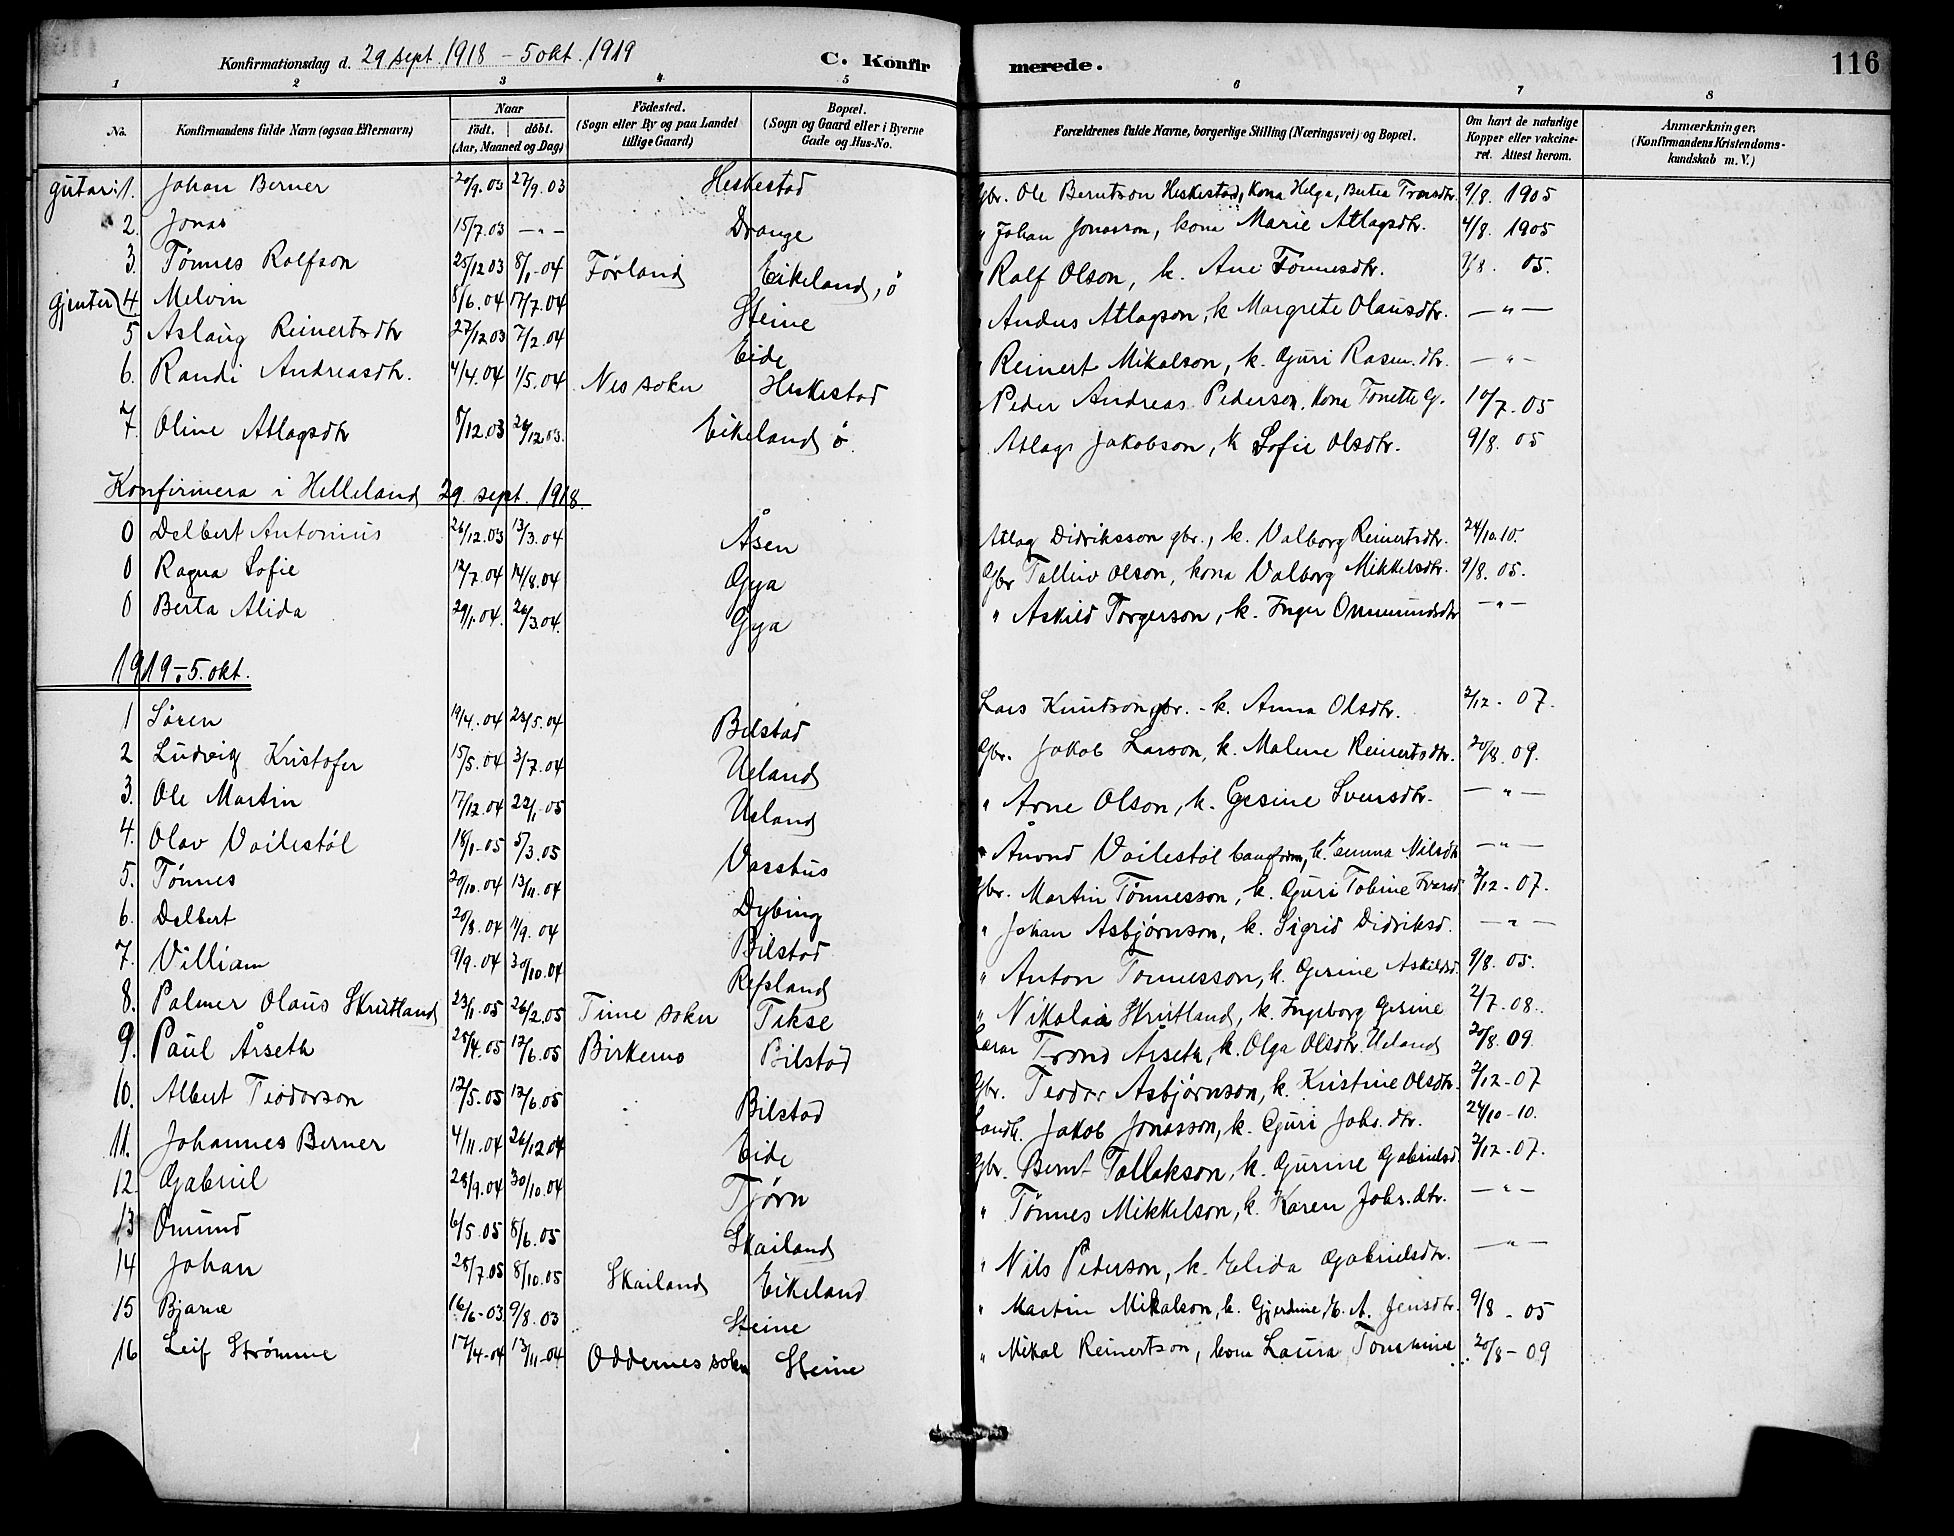 Konfirmationsdag d. 29 sept. 1918 - 5 okt. 1919 C. Konfirmerede. 116
1 2 3 4 5 6 7 8
No. Konfirmandens fulde Navn (ogsaa Efternavn) Naar födt. döbt. (Aar, Maaned og Dag) Födested. (Sogn eller By og paa Landet tillige Gaard) Bopæl. (Sogn og Gaard eller i Byerne Gade og Hus-No. Forældrenes fulde Navne, borgerlige Stilling (Næringsvei) og Bopæl. Om havt de naturlige Kopper eller vakcineret. Attest herom. Anmærkninger. (Konfirmandens Kristendomskundskab m. V.)
gutar: 1. Johan Berner 20/9.03 27/9.03 Heskestad Gbr. Ole Berntson Heskestad, kona Helga, Bertea 9/8. 1905
2. Jonas 15/7.03 —"— Drange " Johan Jonasson, kona Marie Atlagsdtr. 4/8. 1905
3. Tønnes Rolfson 25/12 03 8/1-04 Førland Eikeland, ö " Rolf Olson, k. Ane Tönnesdtr. 9/8. 05.
gjenter 4. Melvin 8/6.04 17/7.04 Steine " Andus Atlagson, k Margrete Olausdtr. —"—
5 Aslaug Reinertsdtr 27/12 03 7/2.04 Eide " Reinert Mikalson, k. Guri Rasm.dtr. —"—
6. Randi Andreasdtr. 4/4.04 1/5.04 Nes sokn Heskestad " Peder Andreas Pederson, kona Tonette G. 10/7.05
7. Oline Atlagsdtr 8/12.03 26/12 03. Eikeland ö. Atlag Jakobson, k Sofie Olsdtr. 9/8. 05
Konfirmera i Helleland 29. sept. 1918.
0 Delbert Antonius 26/12.03 13/3.04 Åsen Atlag Didriksson gbr., k. Valborg Reinertsdtr. 24/10.10.
0 Ragna Sofie 12/7.04 14/8.04 Gya Gbr Tolleiv Olson, kona Valborg Mikkelsdtr. 9/8. 05.
0 Berta Alida 29/1.04. 26/3.04. Gya " Askild Torgerson, k. Inger Ommundsdtr —"—
1919 - 5. okt.
1 Sören 19/4.04 23/5.04 Bilstad Lars Knutson gbr. - k. Anna Olsdtr. 2/12. 07.
2 Ludvig Kristofer 15/5.04 3/7.04 Ueland Gbr. Jakob Larson, k. Malene Reinertsdtr. 20/8.09.
3. Ole Martin 17/12.04 22/1.05 Ueland " Arne Olson, k. Gesine Svensdtr. —"—
4. Olav Vailestöl 18/1-05 5/3.05 Vasshus " Ånund Vailestöl, k. Nilsdtr —"—
5. Tönnes 20/10.04 13/11.04 Dybing Gbr. Martin Tönnesson, k. Guri Tobine Ivarsd. 2/12-07.
6. Delbert 20/8.04 11/9.04 Bilstad " Johan Asbjørnson, k. Sigrid Didriksd. —"—
7. Villiam 9/9.04 30/10.04 Refsland " Anton Tönnesson, k. Gesine Askildsd. 9/8.05.
8. Palmer Olaus Skrutland 23/1.05 26/2.05 Time sokn Tekse " Nikolai Skrutland, k. Ingeborg Gesine 2/7.08.
9. Paul Årseth 25/4.05 12/6.05 Birkemo Bilstad Lærar Trond Årseth, k. Olga Olsdtr. Ueland 20/8.09.
10. Albert Teodorson 12/5.05 12/6.05 Bilstad Gbr. Teodor Asbjørnson, k. Kristine Olsdtr. 2/12-07
11. Johannes Berner 4/11.04 26/12 04 Eide Landh. Jakob Jonasson, k. Guri Johs.dtr. 24/10-10.
12. Gabriel 28/9.04 30/10.04 Tjörn Gbr. Bernt Tollakson, k. Gurine Gabrielsd. 2/12-07.
13 Omund 6/5.05 8/6.05 Skailand " Tönnes Mikkelson, k. Karen Johs.dtr. —"—
14 Johan 28/7.05 8/10.05 Skailand Eikeland " Nils Pederson, k. Elida Gabrielsdtr. —"—
15 Bjarne 16/6-03 9/8.03 Steine " Martin Mikalson, k. Gjerdine, A. Jensdtr. 9/8-05
16 Leif Strömme 17/4-04 13/11-04 Oddernes sokn Steine " Mikal Reinertson, kona Laura Tomine 20/8-09